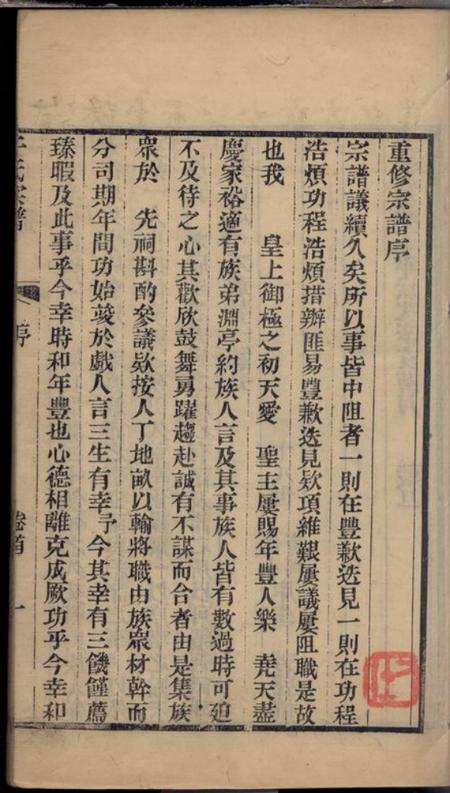 重修宗譜序
宗譜議續久矣所以事皆中阻者一則在豐歉迭見一則在功程
浩煩功程浩煩措辦匪易豐歉迭見欵項維艱屢議屢阻職是故
也我　皇上御極之初天愛　聖主屢賜年豐人樂　堯天盡
慶家裕適有族弟淵亭約族人言及其事族人皆有數過時可廹
不及待之心其歡欣鼓舞勇躍趨赴誠有不謀而合者由是集族
眾於　先祠斟酌叅議欵按人丁地畝以輸將職由族眾材幹而
分司期年間功始竣於戲人言三生有幸予今其幸有三饑饉薦
臻暇及此事乎今幸時和年豐也心德相離克成厥功乎今幸和
氏宗譜
序
一